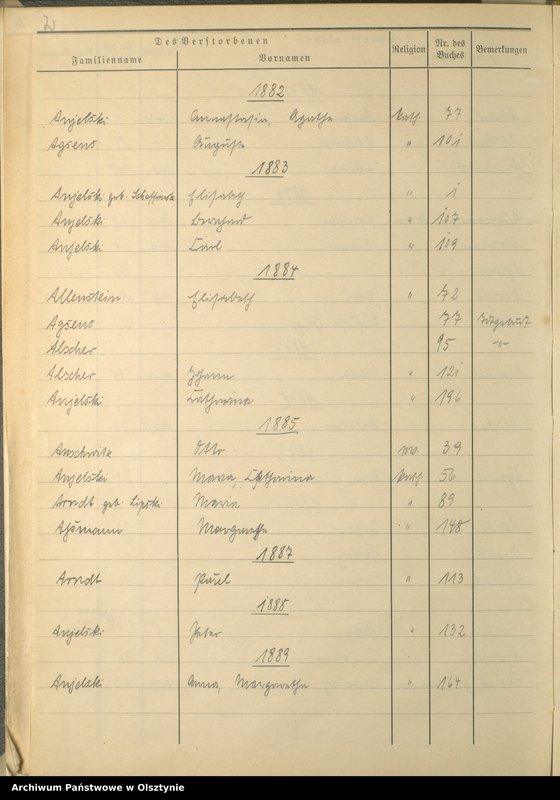 2
Des Verstorbenen
Familienname Vornamen Religion Nr. des Buches Bemerkungen
1882
Anjelski Annastasia, Agathe kath. 77
Agsens Auguste " 101
1883
Anjelski geb. Elisabeth " 1
Anjelski Bernhard " 107
Anjelski Carl " 109
1884
Allenstein Elisabeth " 72
Agsens 77 Totgeburt
Alscher 95 -"-
Alscher Johann " 121
Anjelski Catharina " 196
1885
Anschwitz Otto ev. 39
Anjelski Maria, Catharina kath. 56
Arndt geb. Lipski Maria " 89
Assmann Margarethe " 148
1887
Arndt Paul " 113
1888
Anjelski Peter " 132
1889
Anjelski Anna, Margaretha " 164
Archiwum Państwowe w Olsztynie